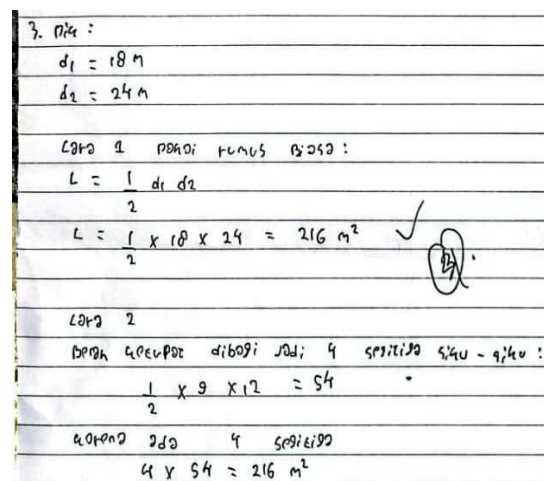 3. Dik :
d₁ = 18 m
d₂ = 24 m
Cara 1 pakai rumus biasa :
L = 1/2 d₁ d₂
L = 1/2 x 18 x 24 = 216 m² ✓
Cara 2
Belah ketupat dibagi jadi 4 segitiga siku - siku :
1/2 x 9 x 12 = 54
karena ada 4 segitiga
4 x 54 = 216 m²